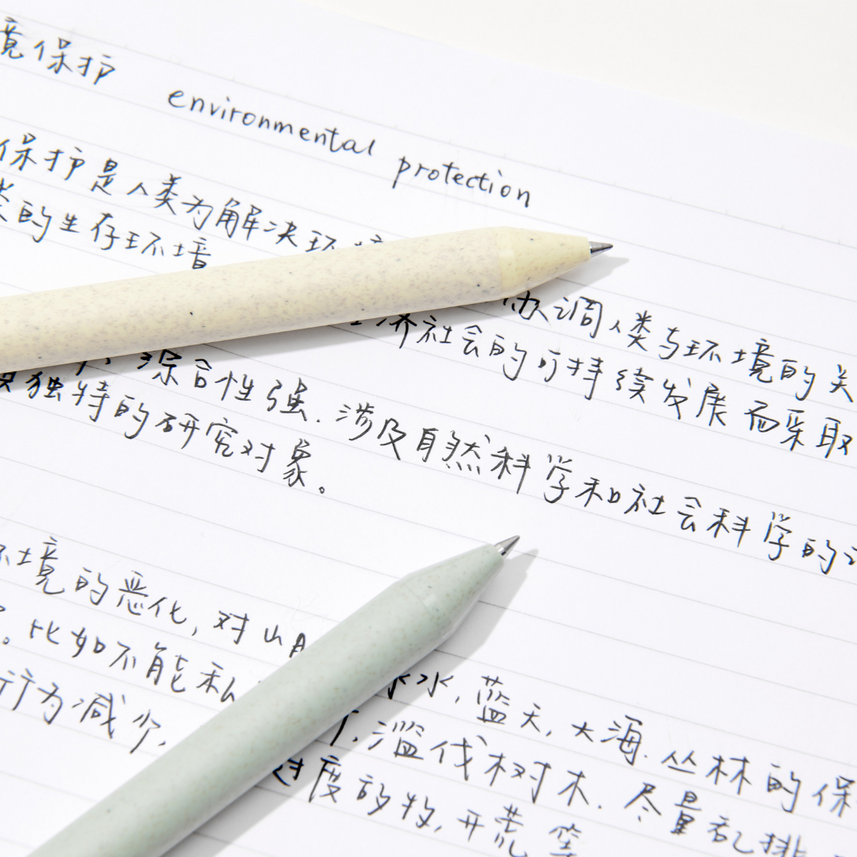 境保护 environmental protection
保护是人类为解决环境 协调人类与环境的关
类的生存环境 经济社会的可持续发展而采取
综合性强.涉及自然科学和社会科学的
独特的研究对象。
环境的恶化,对山 水,蓝天,大海.丛林的保
。比如不能私 滥伐树木.尽量乱排
行为减少, 过度放牧,开荒